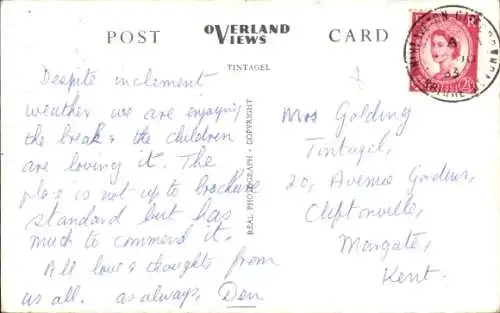 POST
OVERLAND
VIEWS
CARD
TINTAGEL
REAL PHOTOGRAPH - COPYRIGHT
Despite inclement
weather we are enjoying
the break & the children
are loving it. The
place is not up to brochure
standard but has
much to commend it.
All love & thoughts from
us all. as always, Don
Mrs Golding
Tintagel,
20, Avenue Gardens,
Cliftonville,
Margate,
Kent.